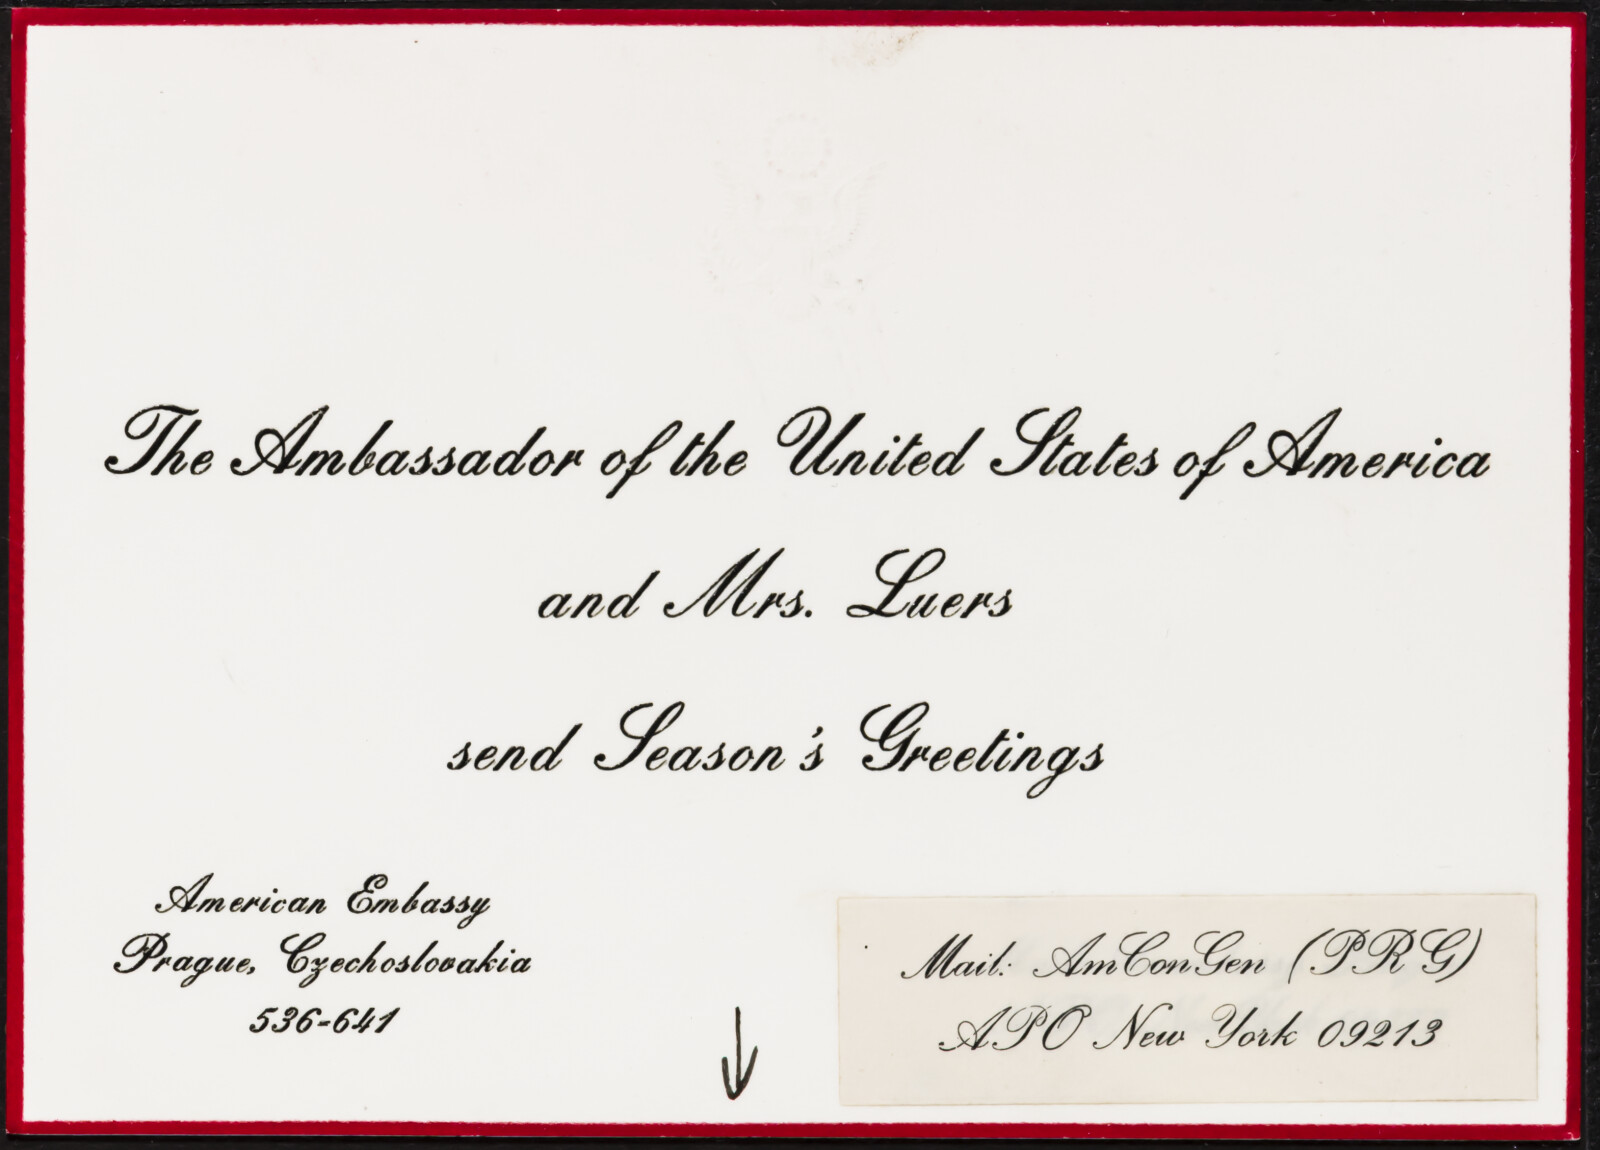 The Ambassador of the United States of America
and Mrs. Luers
send Season's Greetings
American Embassy
Prague, Czechoslovakia
536-641
Mail: AmConGen (PRG)
APO New York 09213